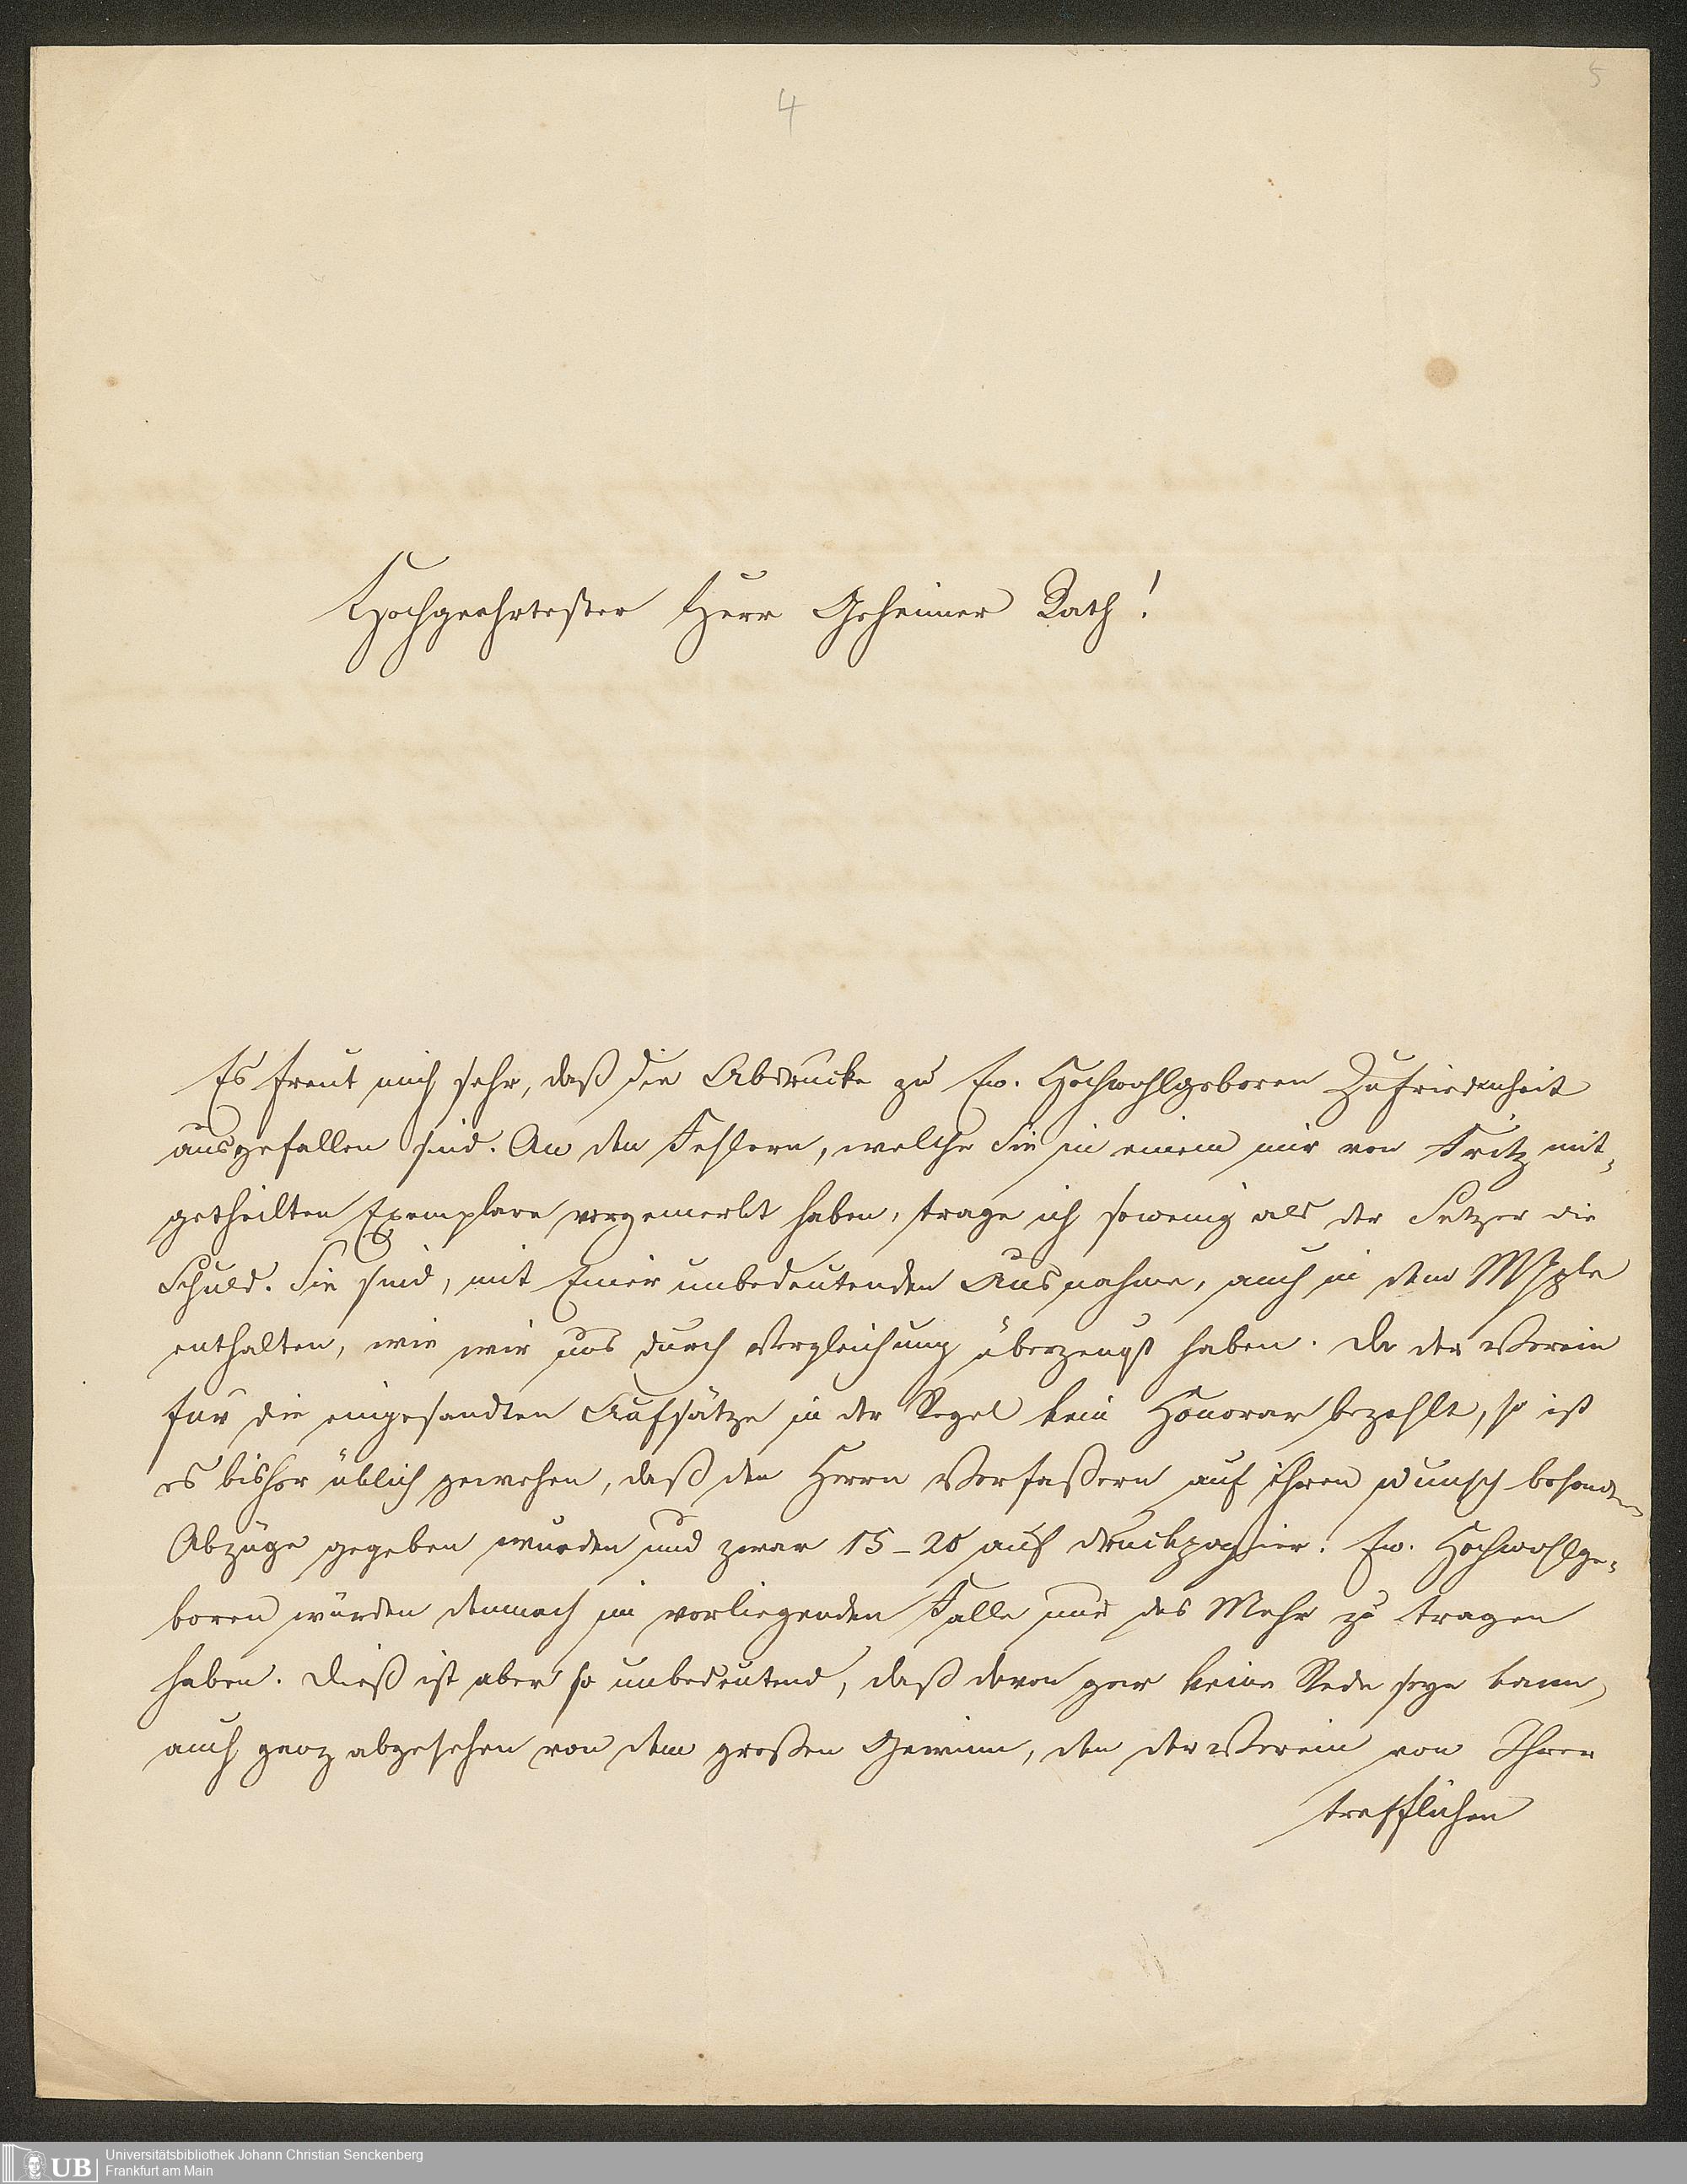 4
5
Hochgeehrtester Herr Geheimer Rath!
Es freut mich sehr, daß die Abdrücke zu Ew. Hochwohlgeboren Zufriedenheit
ausgefallen sind. An den Fehlern, welche Sie in einem mir von Fritz mit-
getheilten Exemplare vorgemerkt haben, trage ich sowenig als der Setzer die
Schuld. Sie sind, mit Einer unbedeutenden Ausnahme, auch in dem
enthalten, wie wir uns durch Vergleichung überzeugt haben. Da der Verein
für die eingesandten Aufsätze in der Regel kein Honorar bezahlt, so ist
es bisher üblich gewesen, daß den Herrn Verfaßern auf ihren Wunsch besondere
Abzüge gegeben wurden und zwar 15-20 auf Druckpapier. Ew. Hochwohlge-
boren würden demnach im vorliegenden Falle nur das Mehr zu tragen
haben. Dieß ist aber so unbedeutend, daß davon gar keine Rede seyn kann,
auch ganz abgesehen von dem großen Gewinn, den der Verein von Ihrer
trefflichen
UB Universitätsbibliothek Johann Christian Senckenberg
Frankfurt am Main